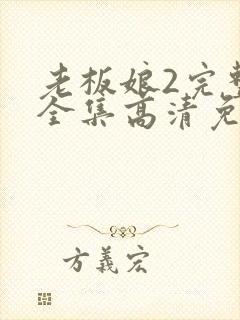 老板娘2完整
全集高清免
方義宏